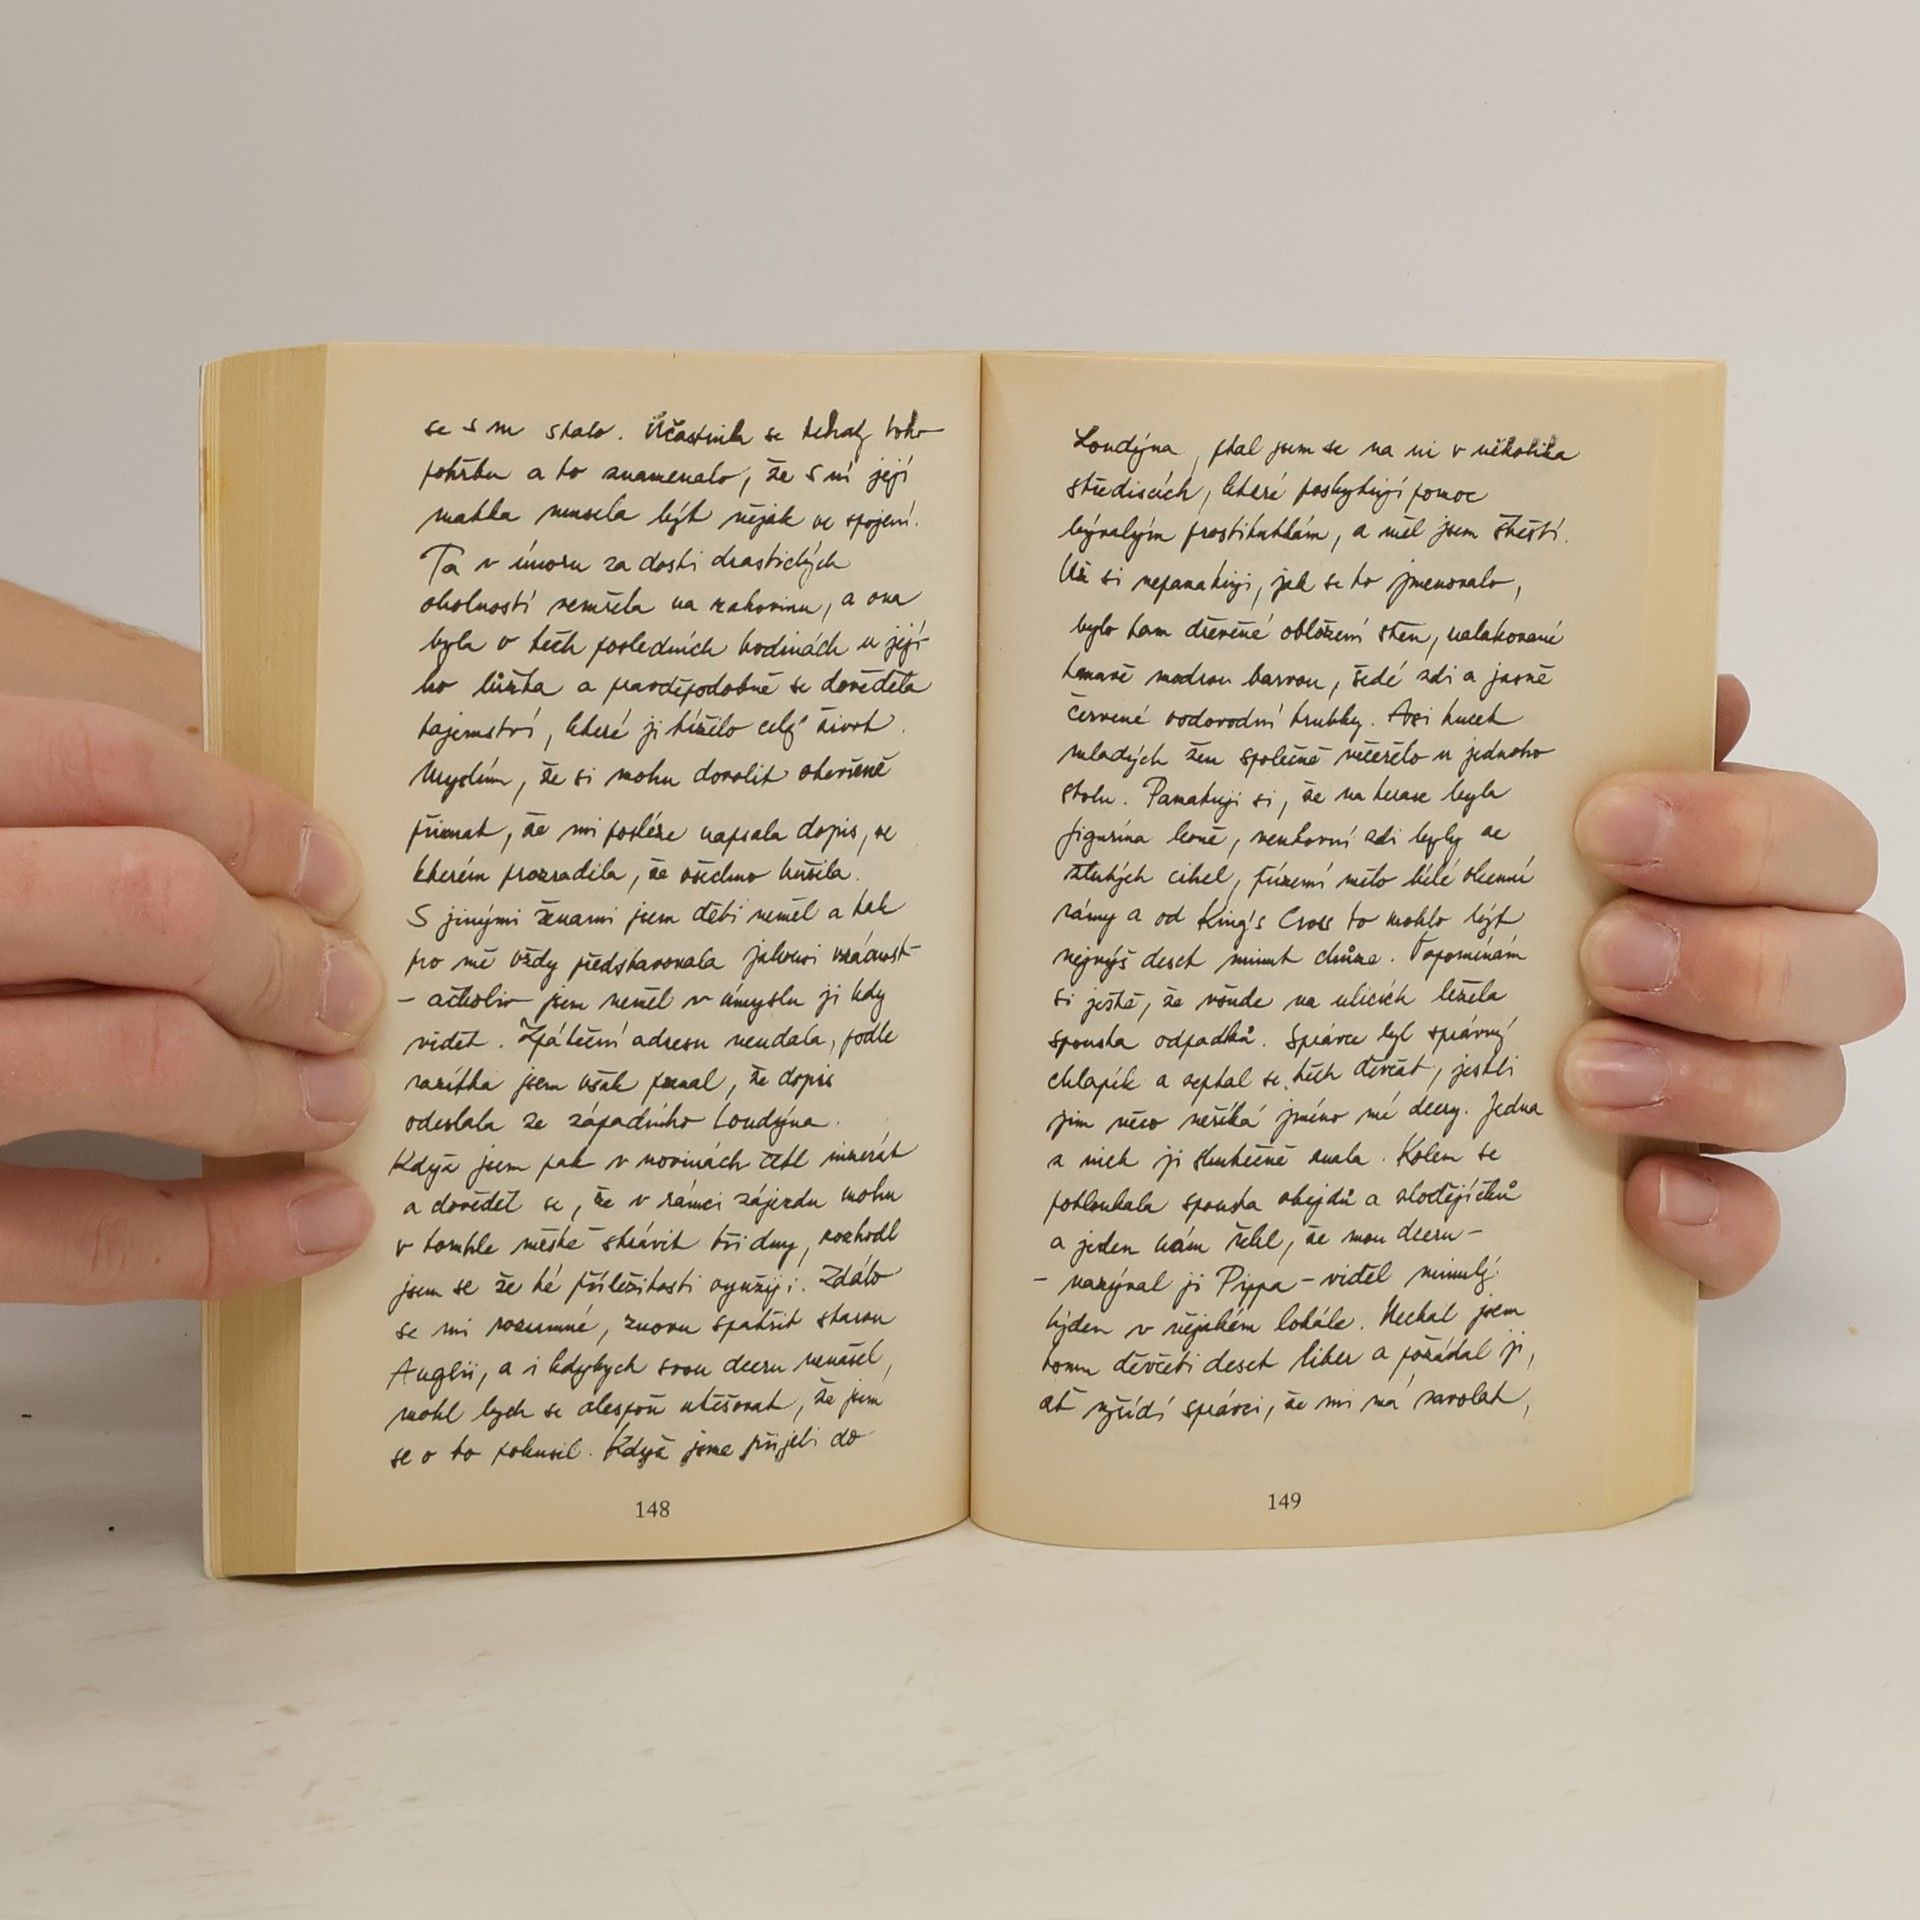 se s ní stalo. Účastnila se tehdy toho
pohřbu a to znamenalo, že s ní její
matka musela být nějak ve spojení.
Ta v únoru za dosti drastických
okolností zemřela na rakovinu, a ona
byla v těch posledních hodinách u její-
ho lůžka a pravděpodobně se dověděla
tajemství, které ji tížilo celý život.
Myslím, že si mohu dovolit otevřeně
přiznat, že mi posléze napsala dopis, ve
kterém prozradila, že všechno tušila.
S jinými ženami jsem děti neměl a tak
pro mě vždy představovala jakousi vzácnost
– ačkoliv jsem neměl v úmyslu ji kdy
vidět. Zpáteční adresu neudala, podle
razítka jsem však poznal, že dopis
odeslala ze západního Londýna.
Když jsem pak v novinách četl inzerát
a dověděl se, že v rámci zájezdu mohu
v tomhle městě strávit tři dny, rozhodl
jsem se že té příležitosti využiji. Zdálo
se mi rozumné, znovu spatřit starou
Anglii, a i kdybych svou dceru nenašel,
mohl bych se alespoň utěšovat, že jsem
se o to pokusil. Když jsme přijeli do
148
Londýna, ptal jsem se na ni v několika
střediscích, které poskytují pomoc
bývalým prostitutkám, a měl jsem štěstí.
Už si nepamatuji, jak se to jmenovalo,
bylo tam dřevěné obložení stěn, nalakované
tmavě modrou barvou, šedé zdi a jasně
červené vodovodní trubky. Asi tucet
mladých žen společně večeřelo u jednoho
stolu. Pamatuji si, že na terase byla
figurína koně, venkovní zdi byly ze
žlutých cihel, přízemí mělo bílé okenní
rámy a od King's Cross to mohlo být
nejvýš deset minut chůze. Vzpomínám
si ještě, že všude na ulicích ležela
spousta odpadků. Správce byl správný
chlapík a zeptal se těch děvčat, jestli
jim něco neříká jméno mé dcery. Jedna
z nich ji skutečně znala. Kolem se
potloukala spousta obejdů a zlodějíčků
a jeden nám řekl, že mou dceru –
– nazýval ji Pippa – viděl minulý
týden v nějakém lokále. Nechal jsem
tomu děvčeti deset liber a požádal ji,
ať vyřídí správci, že mi má zavolat,
149